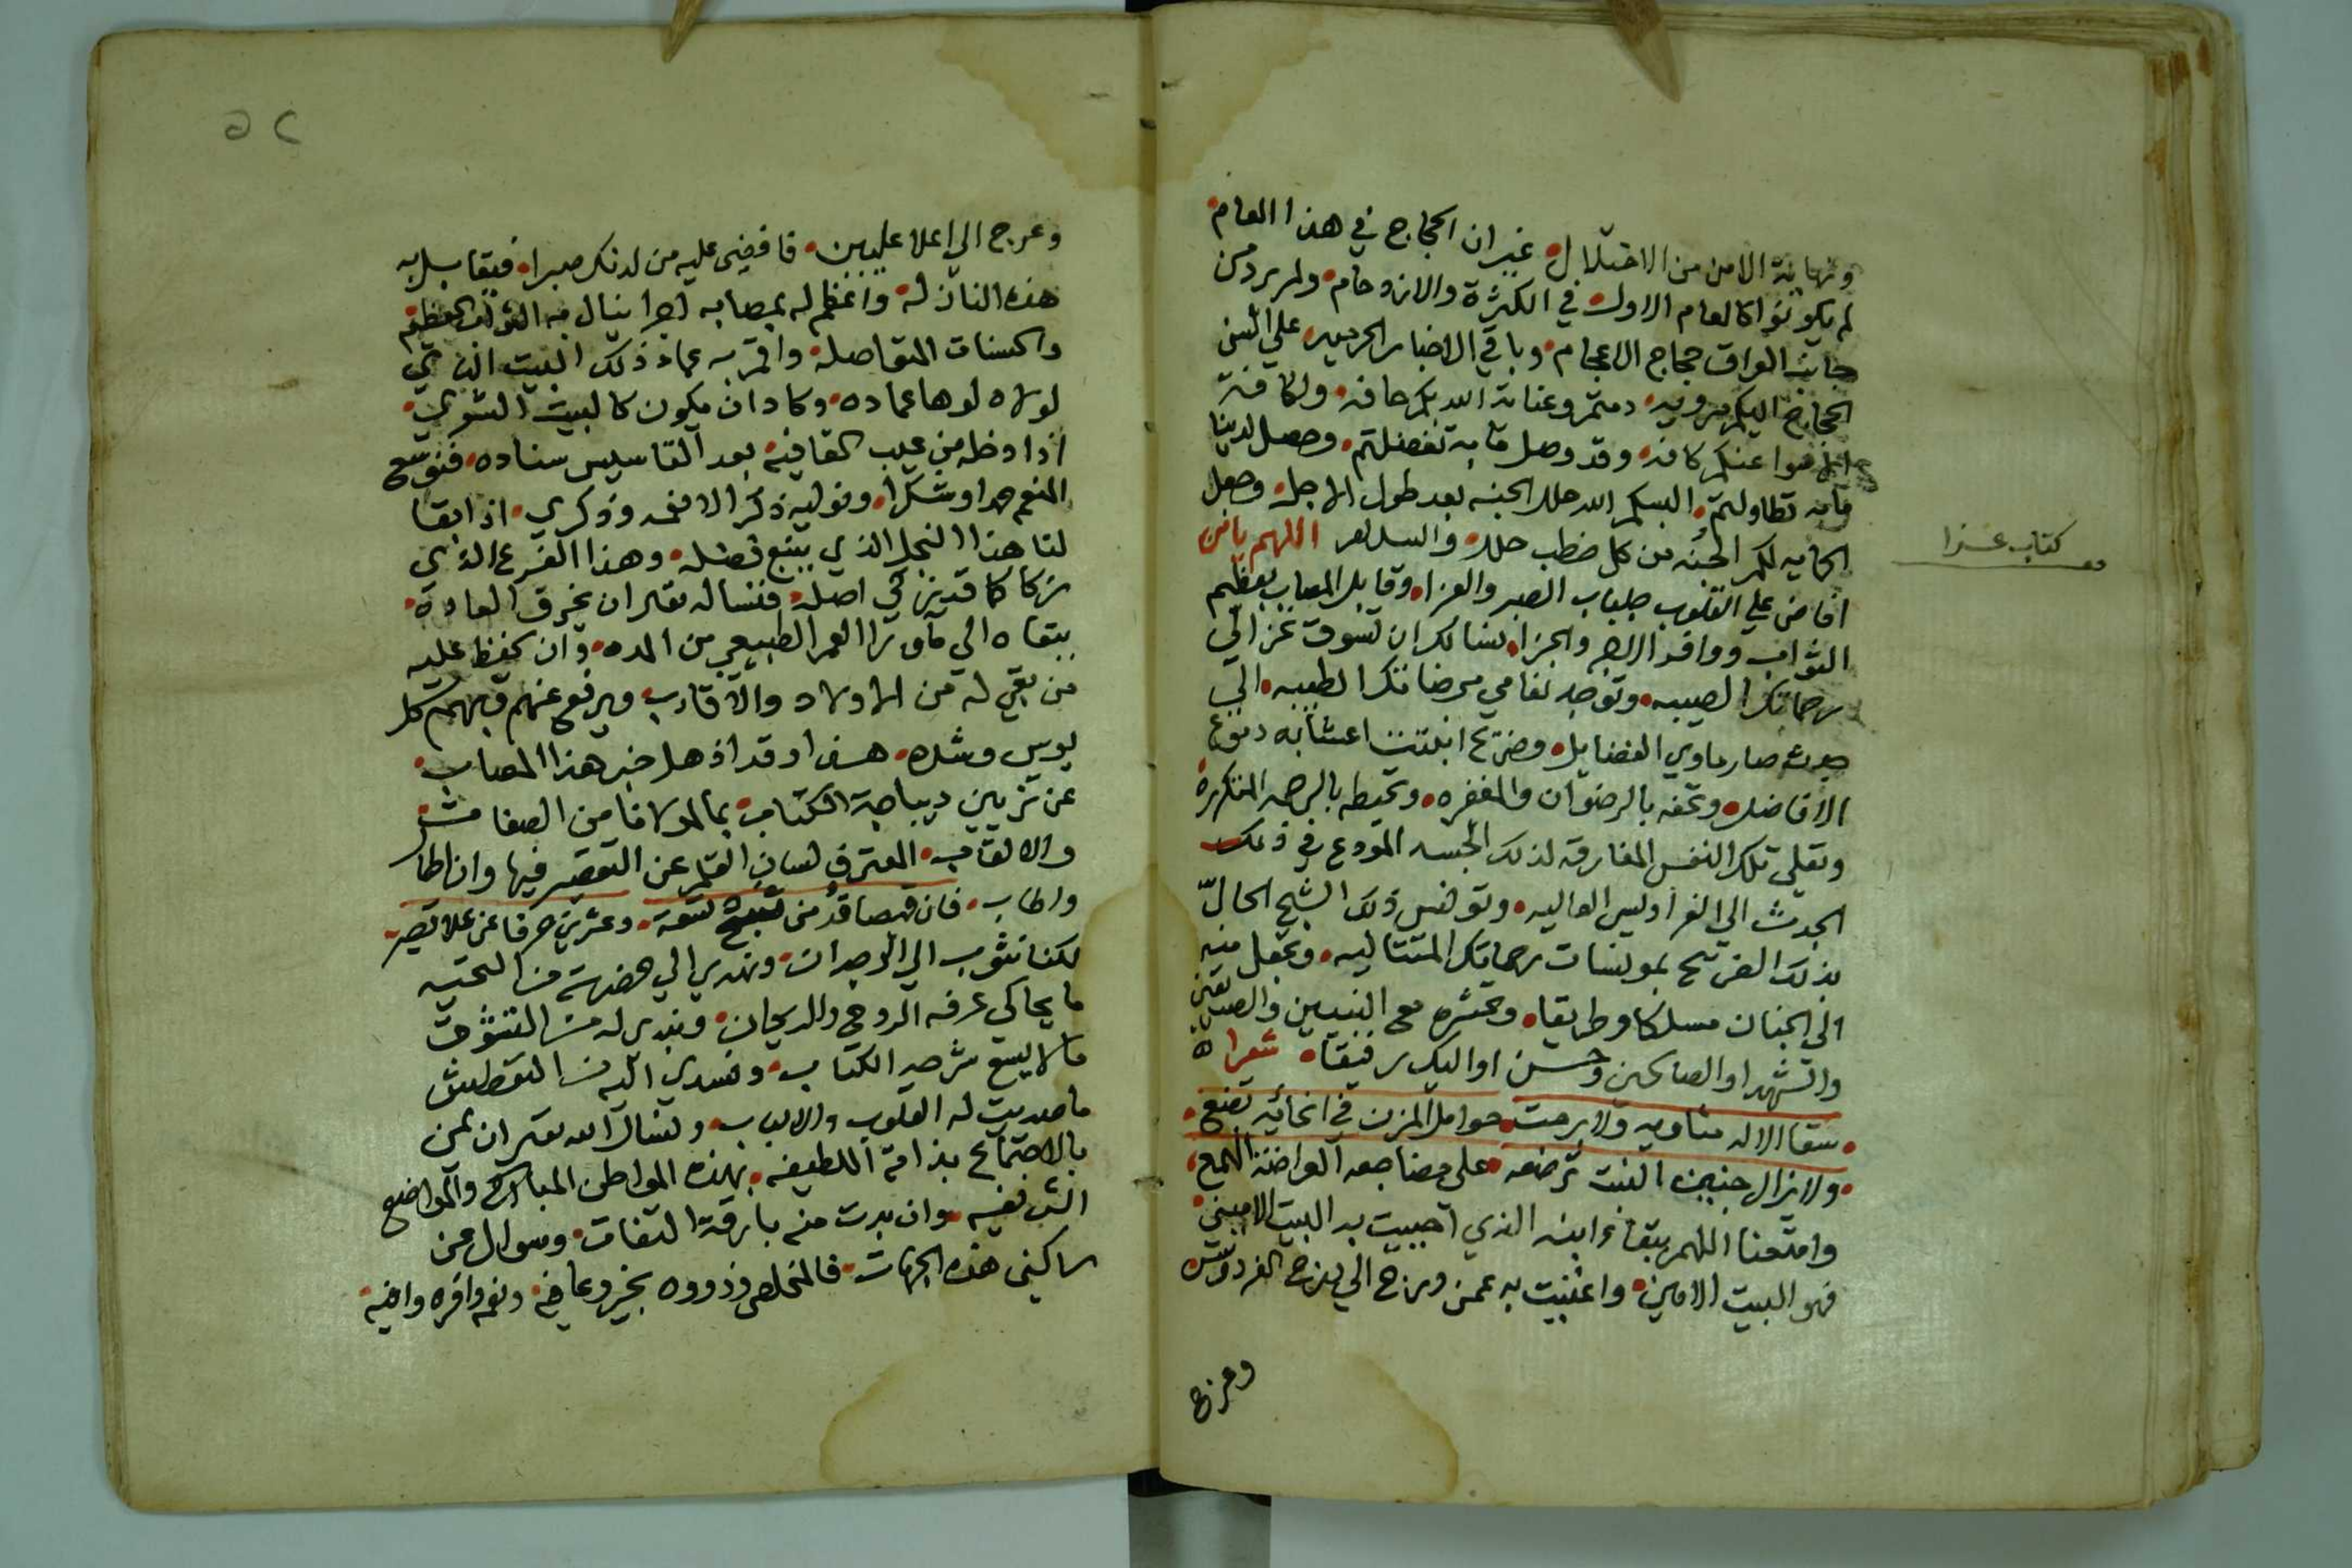 ونهاية الامن من الاختلال غير ان الحجاج في هذا العام
لم يكونوا كالعام الاول في الكثرة والازدحام ولم يرد من
جانب العراق حجاج الاعجام وباقي الاخبار الحرميه على السن
الحجاج اليكم مرويه دمتم وعناية الله بكم حافه ولكافة
عنكم كافه وقد وصل ما به تفضلتم وحصل لدينا
ما به تطاولتم البسكم الله حلل الجنه بعد طول الاجل وجعل
لكم الجنه من كل خطب جلل والسلام اللهم يا من
كتاب عزا
افاض على القلوب جلباب الصبر والعزا وقابل المصاب بعظيم
الثواب ووافر الاجر والجزا نسالك ان تسوق غزالي
رحماتك الصيبه وتوجه نعامي مرضاتك الطيبه الي
جدث صار حاوي الفضايل وضريح ابتلت اعشابه دموع
الافاضل وتحفه بالرضوان والمغفره وتحيطه بالرحمه المتكررة
وتعلي تلك النفس المفارقه لذلك الجسد المودع في ذلك
الجدث الي الفراديس العاليه وتونس ذلك الشبح الحالّ
بذلك الضريح بمونسات رحماتك المتتاليه وتجعل منه
الى الجنان مسلكا وطريقا وتحشره مع النبيين والصديقين
والشهدا والصالحين وحسن اوليك رفيقا شعرا
سقا الاله مثاويه ولا برحت حوامل المزن في انحائه تضع
ولا يزال جنين النبت ترضعه على مضاجعه العراضة الهمع
وامتعنا اللهم ببقاء ابنه الذي احييت به البيت الاميني
فهو البيت الامين واغنيت به عمن درج الي درج الفردوس
وعرج
٥٢
وعرج الي اعلا عليين فافضي عليه من لدنك صبرا فيقابل به
هذه النازلة واعظم له بمصابه اجرا ينال به الثواب العظيم
والحسنات المتفاصله واقم به عماد ذلك البيت الذي
لولاه لوها عماده وكاد ان يكون كالبيت الشعري
اذا وظه من عيب القافيه بعد التاسيس سناده فنوسع
المنعم حمدا وشكرا ونوليه ذكرا لانعمه وذكري اذ ابقا
لنا هذا النجل الذي ينبع فضله وهذا الفرع الذي
زكا كما قد زكي اصله فنساله تعالى ان يخرق العادة
ببقاه الي ما ورا العمر الطبيعي من المده وان يحفظ عليه
من بقي له من الاولاد والاقارب ويرفع عنهم وبهم كل
بوس وشده هذا وقد اذهل خبر هذا المصاب
عن تزيين ديباجة الكتاب بما لمولانا من الصفات
والالقاب المعترف لسان القلم عن التقصير فيها وان اطال
واطاب فان قميصا قُدّ من نسج تسعة وعشرين حرفا عن علاه قصير
لكنا نثوب الي الوجدان ونهدي الي حضرته من التحيه
ما يحاكي عرفه الروح والريحان ونبدي له من التشوق
ما لا يسع شرحه الكتاب ونسدي اليه من التعطش
ما صديت له القلوب والالباب ونسال الله تعالى ان يمن
بالاجتماع بذاته اللطيفه بهذه المواطن المباركه والمواضع
الشريفيه وان بدت منه بارقة التفات وسوال عن
ساكني هذه الجهات فالمخلص وذووه بخير وعافيه ونعم وافره وافيه